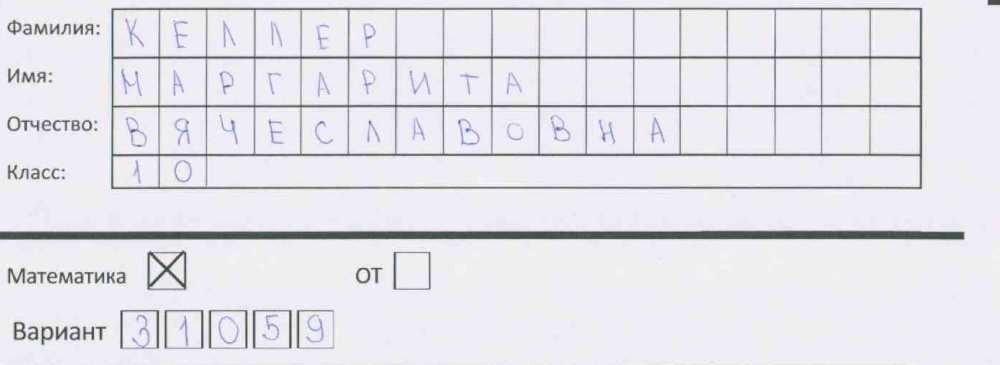 Фамилия: КЕЛЛЕР
Имя: МАРГАРИТА
Отчество: ВЯЧЕСЛАВОВНА
Класс: 10
Математика ☒ ОТ ☐
Вариант 31059